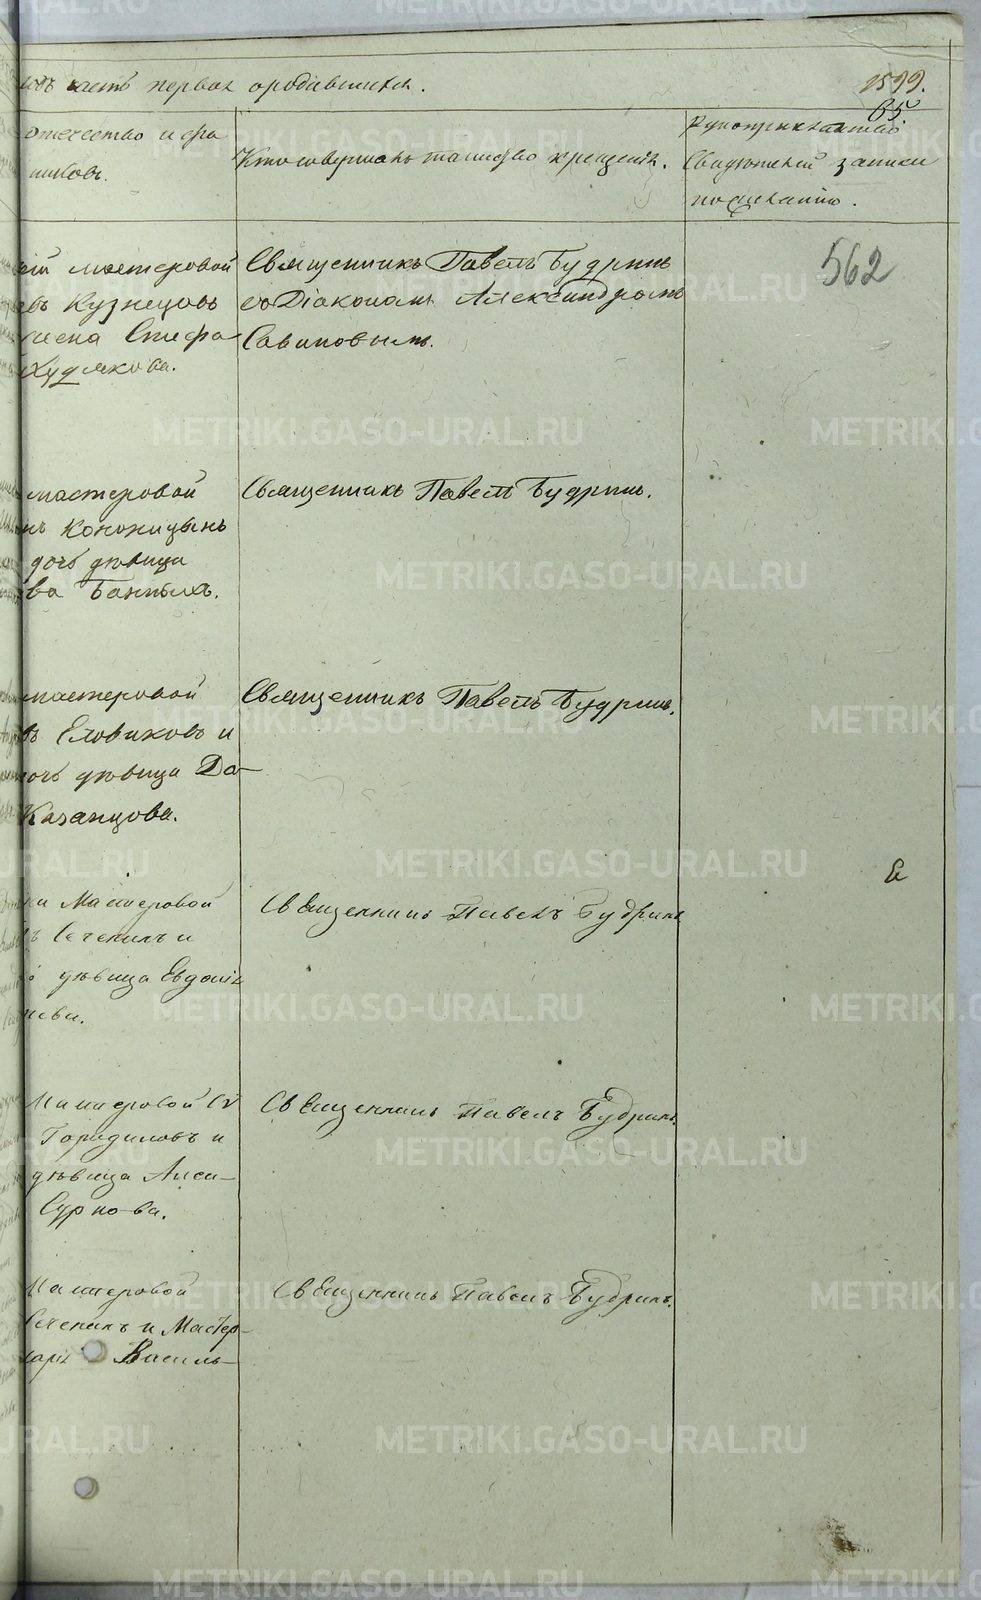 часть первая о родившихся. 1599.
65.
отчество и фа
никовъ.
Кто совершалъ таинство крещенія.
Рукоприкладство
свидѣтелей записи
по желанію.
562
мастеровой
Кузнецовъ
Стефа-
Худякова.
Священникъ Павелъ Будринъ
со Діакономъ Александромъ
Савиновымъ.
мастеровой
Кононицынъ
дочь дѣвица
ва Бантыхъ.
Священникъ Павелъ Будринъ.
мастеровой
въ Еловиковъ и
дочь дѣвица Да-
Казанцова.
Священникъ Павелъ Будринъ.
Мастеровой
Сеченинъ и
дѣвица Евдокія
нева.
Священникъ Павелъ Будринъ
Мастеровой
и
дѣвица Аниси-
Суркова.
Священникъ Павелъ Будринъ.
Мастеровой
Сеченинъ и Мастер-
Василь-
Священникъ Павелъ Будринъ.
METRIKI.GASO-URAL.RU